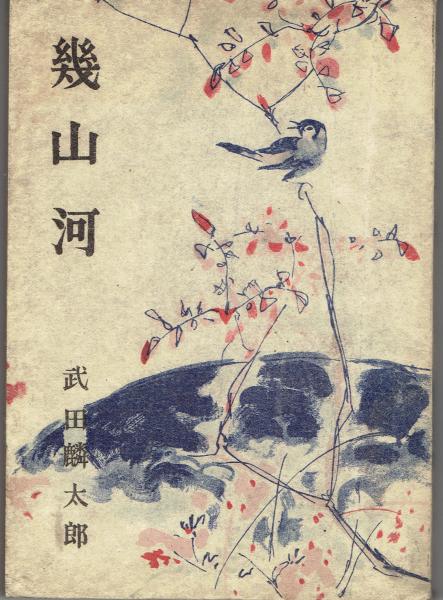 幾山河
武田麟太郎